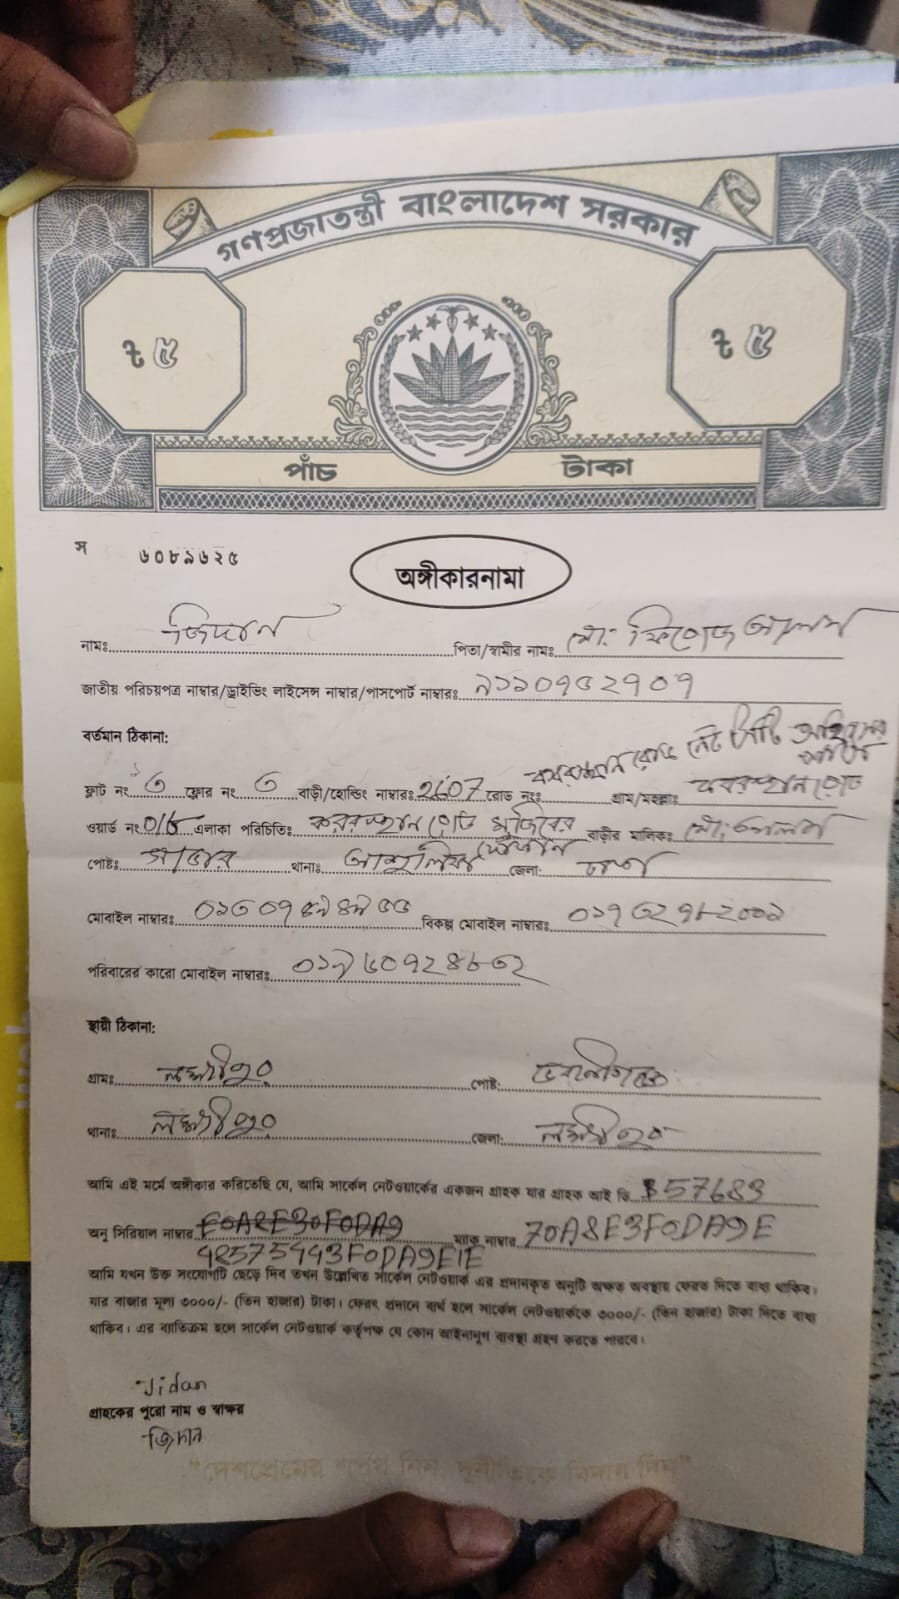 গণপ্রজাতন্ত্রী বাংলাদেশ সরকার
৳ ৫ ৳ ৫
পাঁচ টাকা
স ৬০৮৯৬২৫
অঙ্গীকারনামা
নামঃ জিদান পিতা/স্বামীর নামঃ মো: ফিরোজ আলম
জাতীয় পরিচয়পত্র নাম্বার/ড্রাইভিং লাইসেন্স নাম্বার/পাসপোর্ট নাম্বারঃ
বর্তমান ঠিকানা:
কবরস্থান রোড
ফ্লাট নং ৩ ফ্লোর নং ৩ বাড়ী/হোল্ডিং নাম্বারঃ রোড নংঃ গ্রাম/মহল্লাঃ কবরস্থান রোড
ওয়ার্ড নং এলাকা পরিচিতিঃ কবরস্থান রোড মুজিবের বাড়ীর মালিকঃ মো: আলম
পোষ্টঃ সাভার থানাঃ আশুলিয়া জেলা: ঢাকা
মোবাইল নাম্বারঃ বিকল্প মোবাইল নাম্বারঃ
পরিবারের কারো মোবাইল নাম্বারঃ
স্থায়ী ঠিকানা:
গ্রামঃ লক্ষ্মীপুর পোষ্ট: ভবানীগঞ্জ
থানাঃ লক্ষ্মীপুর জেলা: লক্ষ্মীপুর
আমি এই মর্মে অঙ্গীকার করিতেছি যে, আমি সার্কেল নেটওয়ার্কের একজন গ্রাহক যার গ্রাহক আই ডি 57683
অনু সিরিয়াল নাম্বার ম্যাক নাম্বার 70A8E3F0DA9E
48575443F0DA9E1E
আমি যখন উক্ত সংযোগটি ছেড়ে দিব তখন উল্লেখিত সার্কেল নেটওয়ার্ক এর প্রদানকৃত অনুটি অক্ষত অবস্থায় ফেরত দিতে বাধ্য থাকিব।
যার বাজার মূল্য ৩০০০/- (তিন হাজার) টাকা। ফেরৎ প্রদানে ব্যর্থ হলে সার্কেল নেটওয়ার্ককে ৩০০০/- (তিন হাজার) টাকা দিতে বাধ্য
থাকিব। এর ব্যতিক্রম হলে সার্কেল নেটওয়ার্ক কর্তৃপক্ষ যে কোন আইনানুগ ব্যবস্থা গ্রহণ করতে পারবে।
Jidan
গ্রাহকের পুরো নাম ও স্বাক্ষর
জিদান
"দেশপ্রেমের শপথ নিন, দুর্নীতিকে বিদায় দিন"